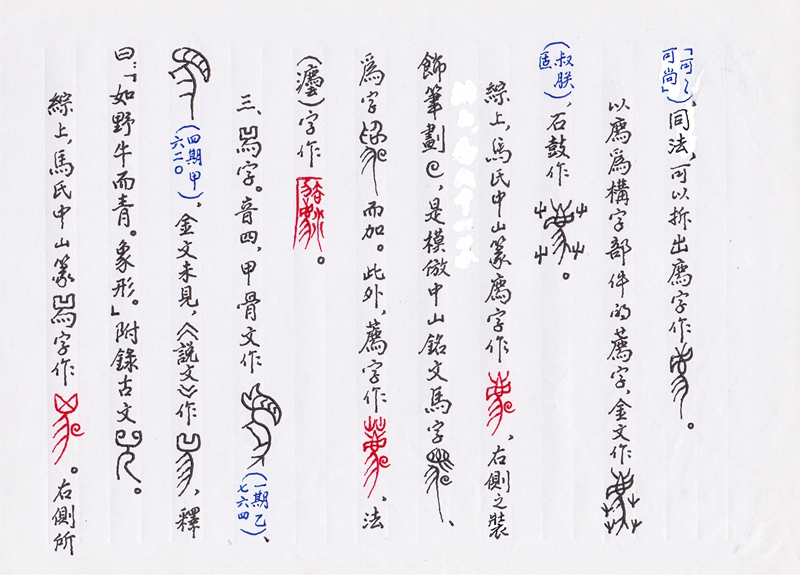 同法,可以拆出廌字作。
以廌爲構字部件的薦字,金文作
(叔朕),石鼓作。
綜上,馬氏中山篆廌字作,右側之裝
飾筆劃,是模倣中山銘文馬字、
爲字而加。此外,薦字作,法
(灋)字作。
三、字。音四,甲骨文作(一期乙七六四)、
(四期甲六二〇),金文未見,《說文》作,釋
曰:「如野牛而青。象形。」附錄古文。
綜上,馬氏中山篆字作。右側所